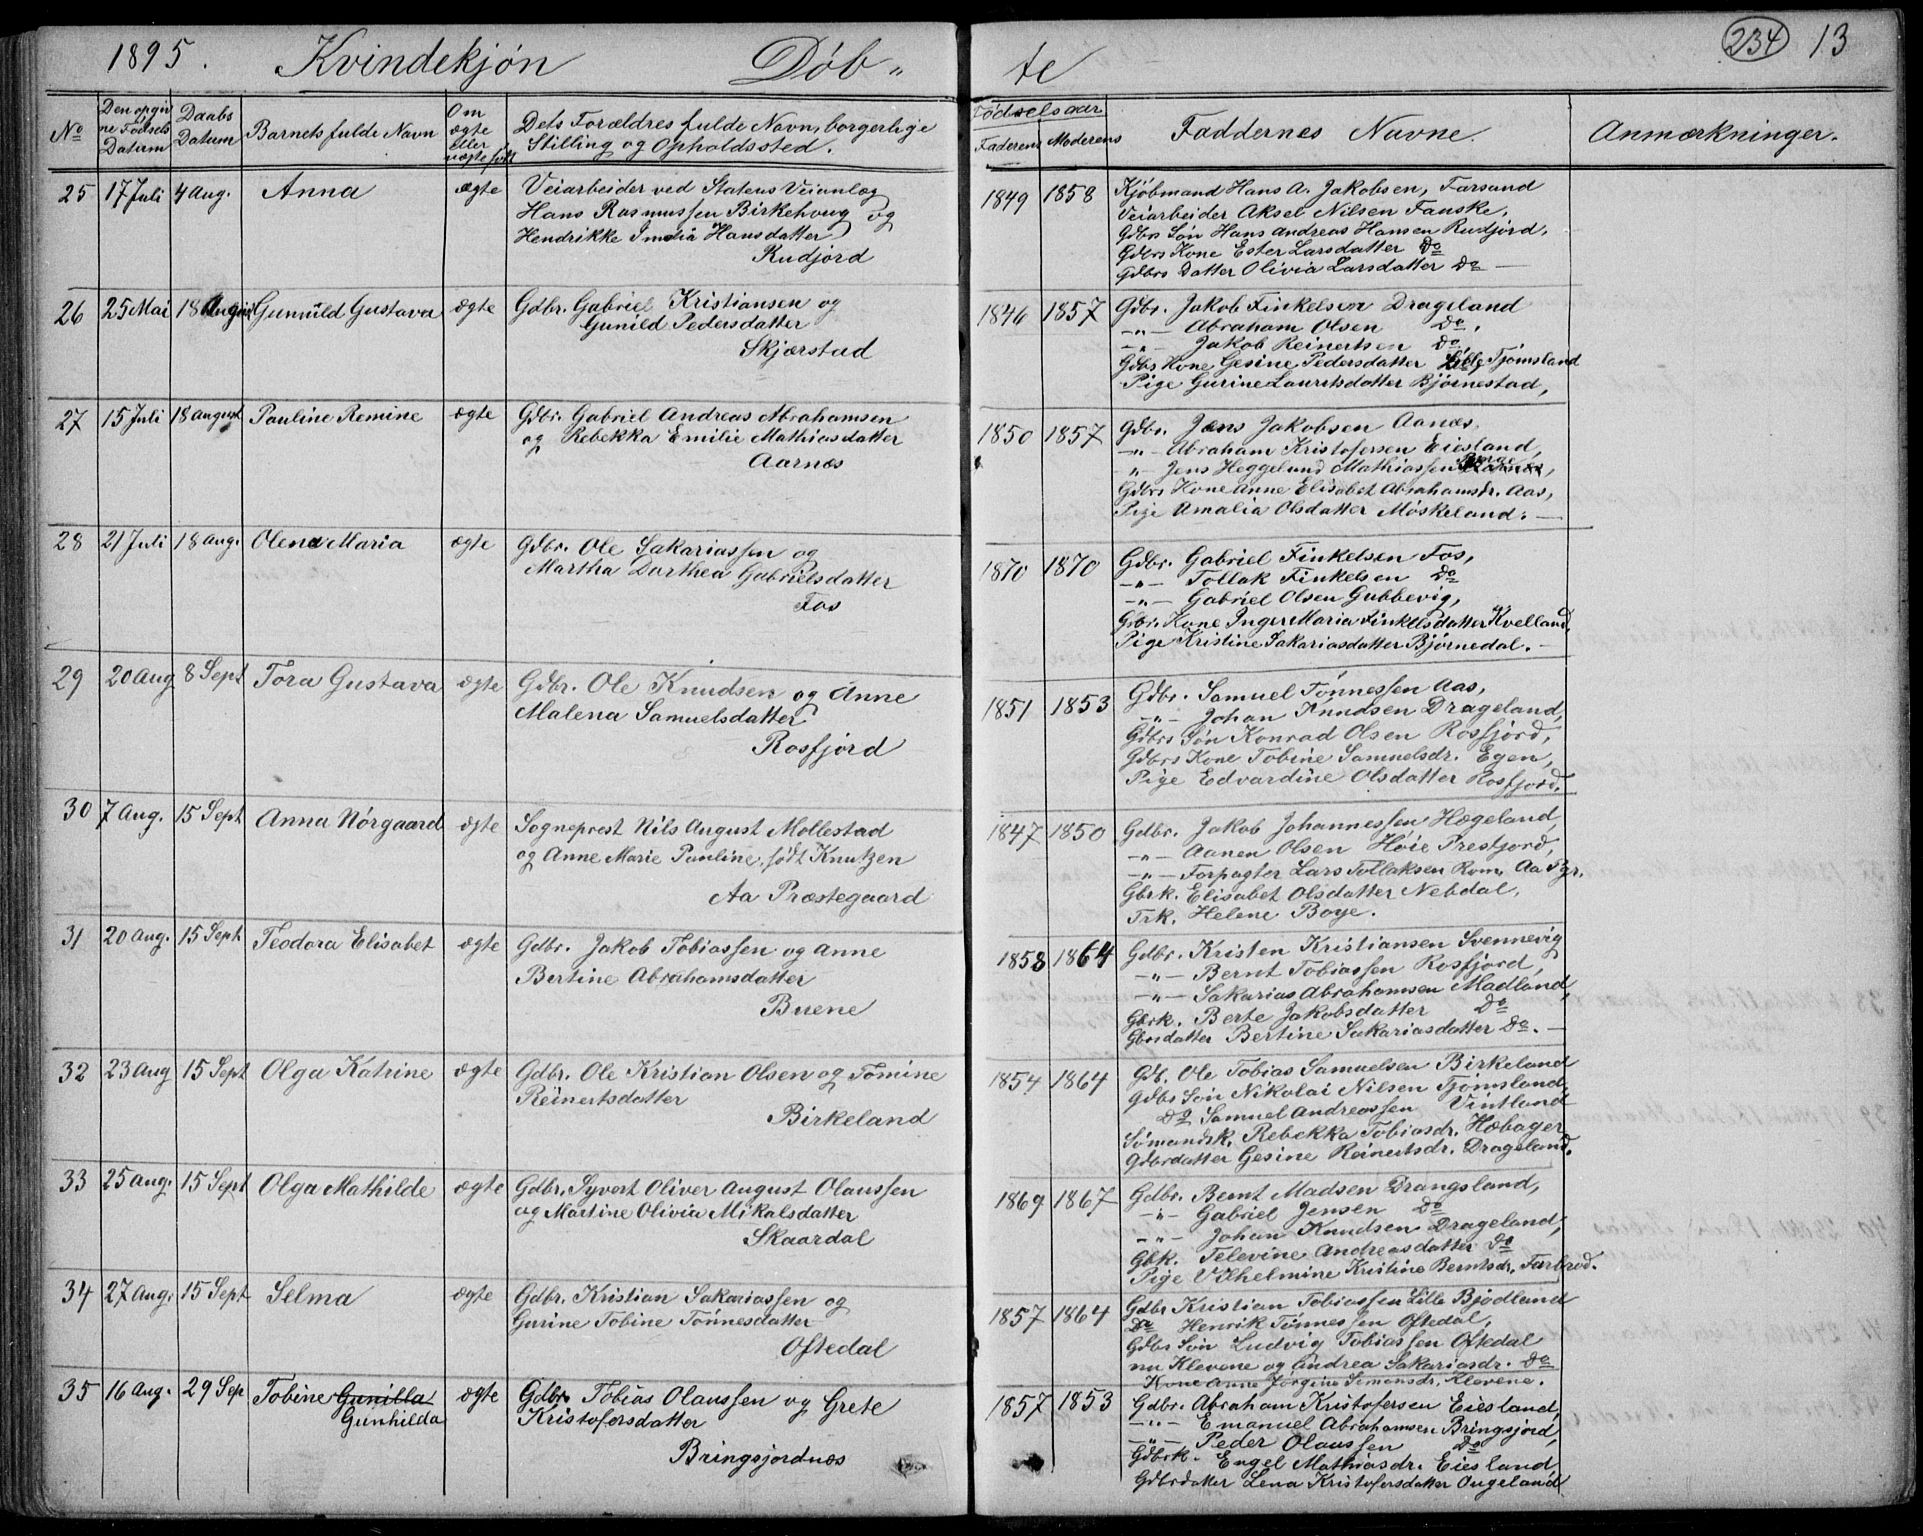 1895. Kvindekjøn Døb„ te 234 13
No Den opgivne Fødsels Datum Daabs Datum Barnets fulde Navn Om ægte eller uægte født Dets Forældres fulde Navn, borgerlige Stilling og Opholdssted. Fødselsaar Faderens Moderens Faddernes Navne. Anmærkninger.
25 17 Juli 4 Aug. Anna ægte Veiarbeider ved Statens Veianlæg
Hans Rasmussen Birkehoug og
Hendrikke Hansdatter
Rudjord
1849 1858 Kjøbmand Hans A. Jakobsen, Farsund
Veiarbeider Aksel Nilsen Fauske,
Gdbrs Søn Hans Andreas Hansen Rudjord,
Gdbrs Kone Ester Larsdatter Do
Gdbrs Datter Olivia Larsdatter Do —
26 25 Mai 18 August Gunnild Gustava ægte Gdbr. Gabriel Kristiansen og
Gunild Pedersdatter
Skjærstad
1846 1857 Gdbr. Jakob Finkelsen Drageland
—„— Abraham Olsen Do,
—„— Jakob Reinertsen Do,
Gdbs Kone Gesine Pedersdatter Lille Tjømsland
Pige Gurine Lauritsdatter Bjørnestad,
27 15 Juli 18 august Pauline Remine ægte Gdbr. Gabriel Andreas Abrahamsen
og Rebekka Emilie Mathiasdatter
Aarnes
1850 1857 Gdbr. Jens Jakobsen Aanæs,
—„— Abraham Kristofersen Eiesland,
„— Jens Heggelund Mathiassen
Gdbrs Kone Anne Elisabet Abrahamsdr. Aas,
Pige Amalia Olsdatter Møskeland. —
28 21 Juli 18 aug. Olena Maria ægte Gdbr. Ole Sakariassen og
Martha Dorthea Gabrielsdatter
Fos
1870 1870 Gdbr. Gabriel Finkelsen Fos,
—„— Tollak Finkelsen Do
—„— Gabriel Olsen Gubbevig,
Gdbr. Kone Inger Maria Finkelsdatter Kvelland,
Pige Kristine Sakariasdatter Bjørnedal. —
29 20 Aug 8 Sept Tora Gustava ægte Gdbr. Ole Knudsen og Anne
Malena Samuelsdatter
Rosfjord
1851 1853 Gdbr. Samuel Tønnessen Aas,
—„— Johan Knudsen Drageland,
Gdbrs Søn Konrad Olsen Rosfjord,
Gdbrs Kone Tobine Samuelsdr. Egen,
Pige Edvardine Olsdatter Rosfjord,
30 7 Aug. 15 Sept Anna Nørgaard ægte Sogneprest Nils August Mollestad
og Anne Marie Pauline, født Knutzen
Aa Præstegaard
1847 1850 Gdbr. Jakob Johannessen Hægeland,
—„— Aanen Olsen Høie Prestjord,
—„— Forpagter Lars Tollaksen Rom, Aa Pgr.
Gbrk. Elisabet Olsdatter Nebdal,
Frk. Helene Boye.
31 20 aug. 15 Sept Teodora Elisabet ægte Gdbr. Jakob Tobiassen og Anne
Bertine Abrahamsdatter
Buene
1858 1864 Gdbr. Kristen Kristiansen Svennevig
—„— Bernt Tobiassen Rosfjord,
—„— Sakarias Abrahamsen Madland,
Gbrk. Berte Jakobsdatter Do
Gbrsdatter Bertine Sakariasdatter Do. —
32 23 Aug 15 Sept Olga Katrine ægte Gdbr. Ole Kristian Olsen og Tomine
Reinertsdatter
Birkeland
1854 1864 Gdb. Ole Tobias Samuelsen Birkeland
Gdbs Søn Nikolai Nilsen Tjømsland,
Do Samuel Andreassen Vintland
Sømandsk. Rebekka Tobiasdr. Hæbager
Gdbrdatter Gesine Reinertsdr. Drageland.
33 25 Aug. 15 Sept Olga Mathilde ægte Gdbr. Syvert Oliver August Olaussen
og Martine Olivia Mikalsdatter
Skaardal
1869 1867 Gdbr. Bernt Madsen Drangsland,
—„— Gabriel Jensen Do
—„— Johan Knudsen Drageland,
Gbk. Televine Andreasdatter Do
Pige Vilhelmine Kristine Berntsdr. Farbrød.
34 27 Aug. 15 Sept Selma ægte Gdbr. Kristian Sakariassen og
Gurine Tobine Tønnesdatter
Oftedal
1857 1864 Gdbr Kristian Tobiassen Lille Bjødland
Do Henrik Tønnessen Oftedal,
Gdbs Søn Ludvig Tobiassen Oftedal
nu Klevene og Andrea Sakariasdr. Do
Kone Anne Jørgine Simonsdr. Klevene.
35 16 Aug. 29 Sep Tobine Gunilla
Gunhilda ægte Gdbr. Tobias Olaussen og Grete
Kristofersdatter
Bringsjordnæs
1857 1853 Gdbr. Abraham Kristofersen Eiesland,
—„— Emanuel Abrahamsen Bringsjord,
—„— Peder Olaussen Do
Gdbrk. Engel Mathiasdr. Eiesland
Gdbrdatter Lena Kristofersdatter Ougeland